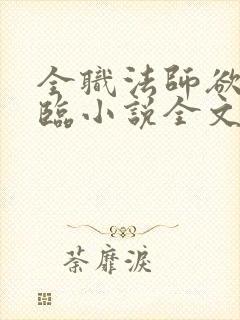 全職法師欲
臨小說全文
荼靡淚